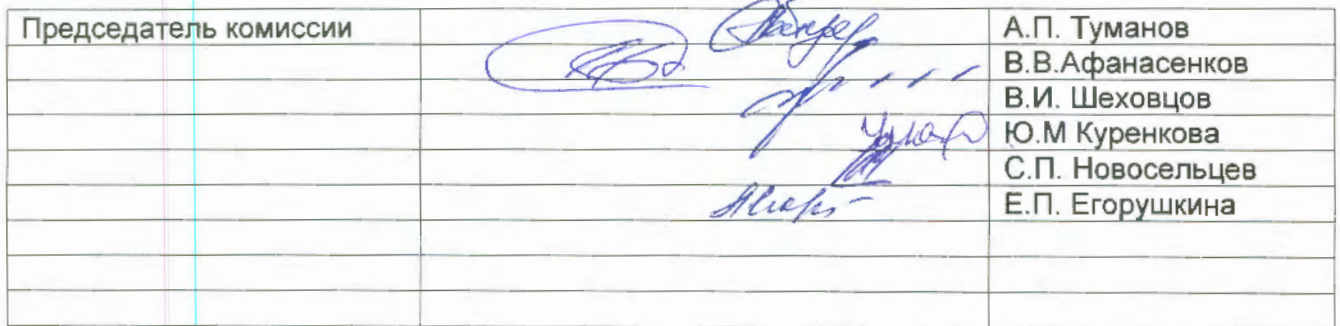 Председатель комиссии А.П. Туманов
В.В.Афанасенков
В.И. Шеховцов
Ю.М Куренкова
С.П. Новосельцев
Е.П. Егорушкина